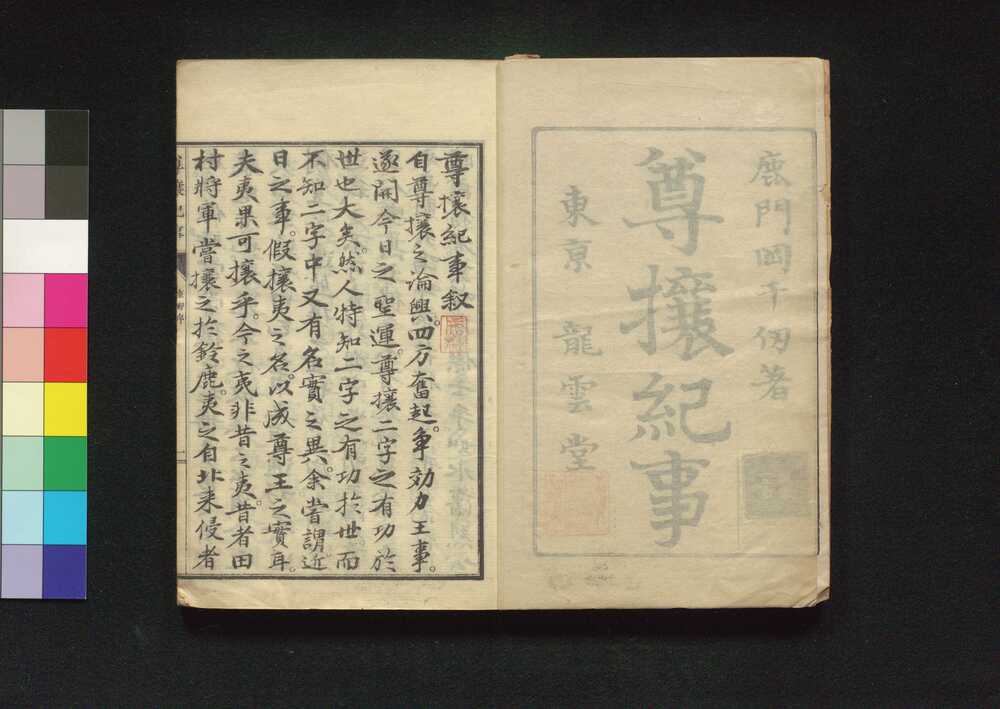 鹿門岡千仞著
尊攘紀事
東京 龍雲堂
尊攘紀事叙
自尊攘之論興。四方奮起。争効力王事。
遂開今日之聖運。尊攘二字之有功於
世也大矣。然人特知二字之有功於世。而
不知二字中又有名實之異。余嘗謂近
日之事。假攘夷之名。以成尊王之實耳。
夫夷果可攘乎。今之夷非昔之夷。昔者田
村將軍嘗攘之於鈴鹿。夷之自北来侵者
尊攘紀事